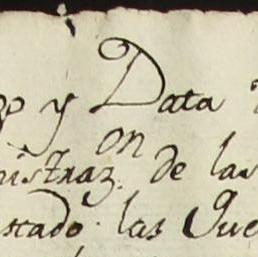 y Data
nistraz.on de las
stado. las Que